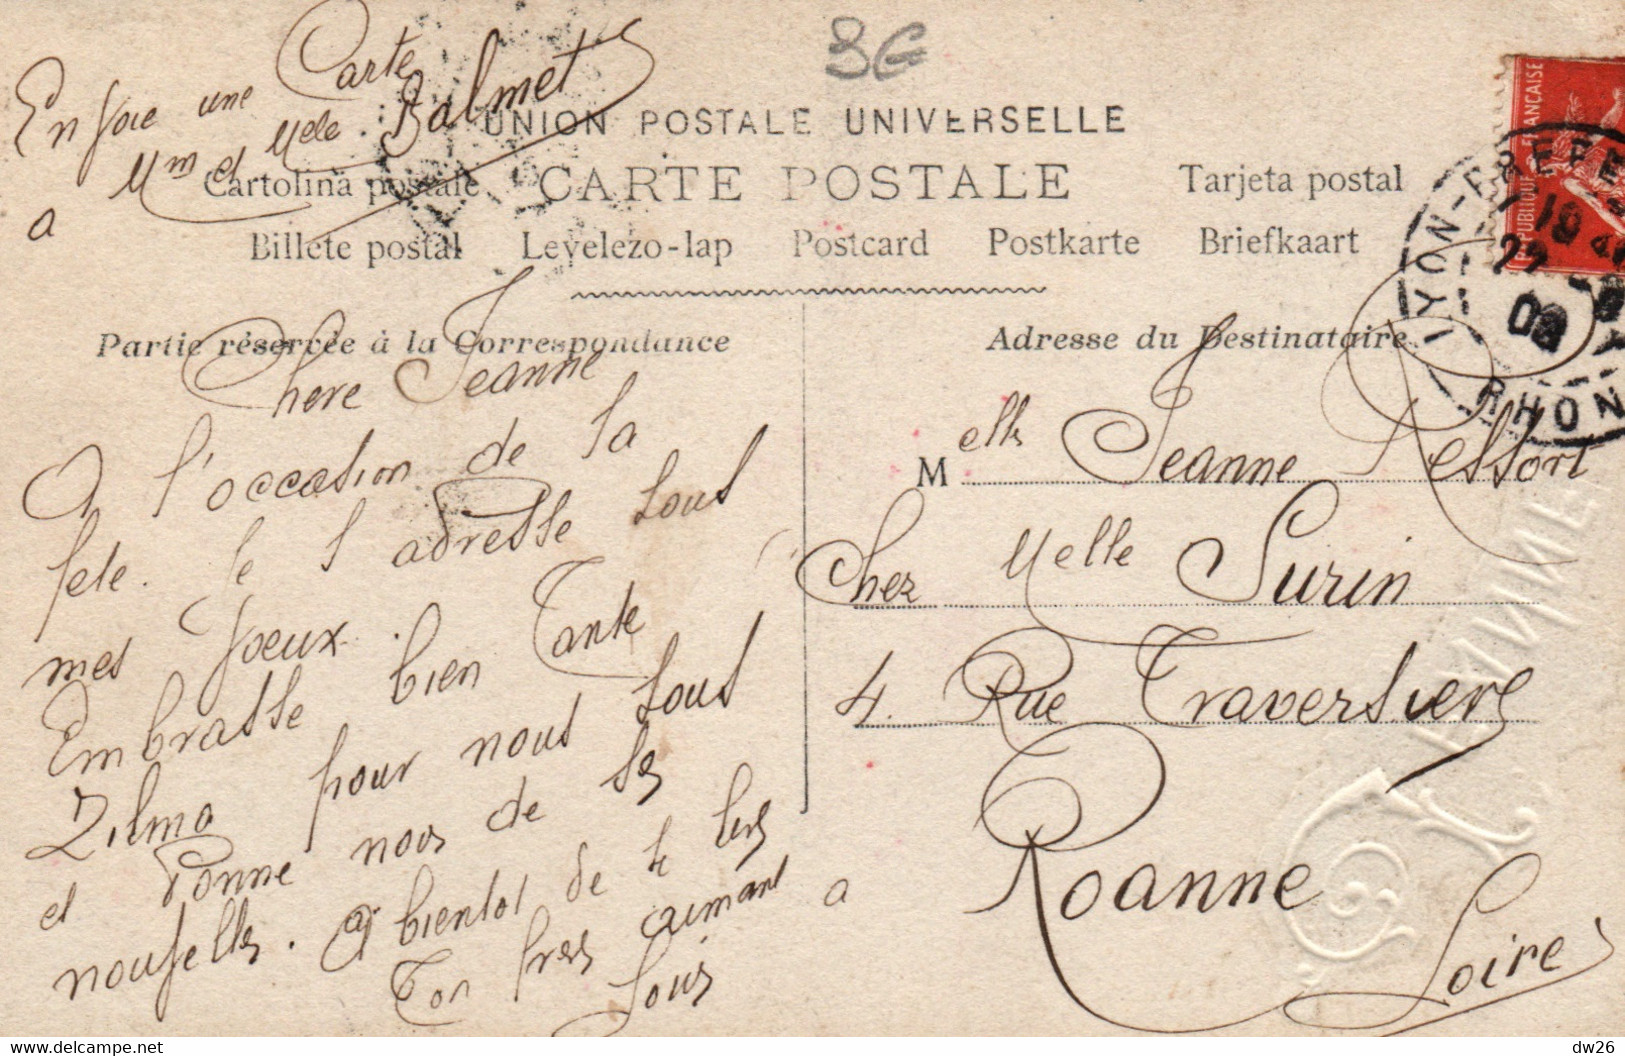 3€
Envoie une Carte
a Mm et Melle. Balmet
UNION POSTALE UNIVERSELLE
Cartolina postale CARTE POSTALE Tarjeta postal
Billete postal Levelezo-lap Postcard Postkarte Briefkaart
REPUBLIQUE FRANÇAISE
LYON-
RHON
Partie réservée à la Correspondance
Chere Jeanne
A l'occasion de ta
fete. Je t adresse tous
mes Voeux.
Embrasse bien Tante
Zilma pour nous tous
et Donne nous de tes
nouvelles. A bientot de te lire
Ton frere aimant
Louis
Adresse du Destinataire
Melle Jeanne
Chez Melle Surin
4. Rue Traversiere
a Roanne
Loire
ETIENNE
dw26